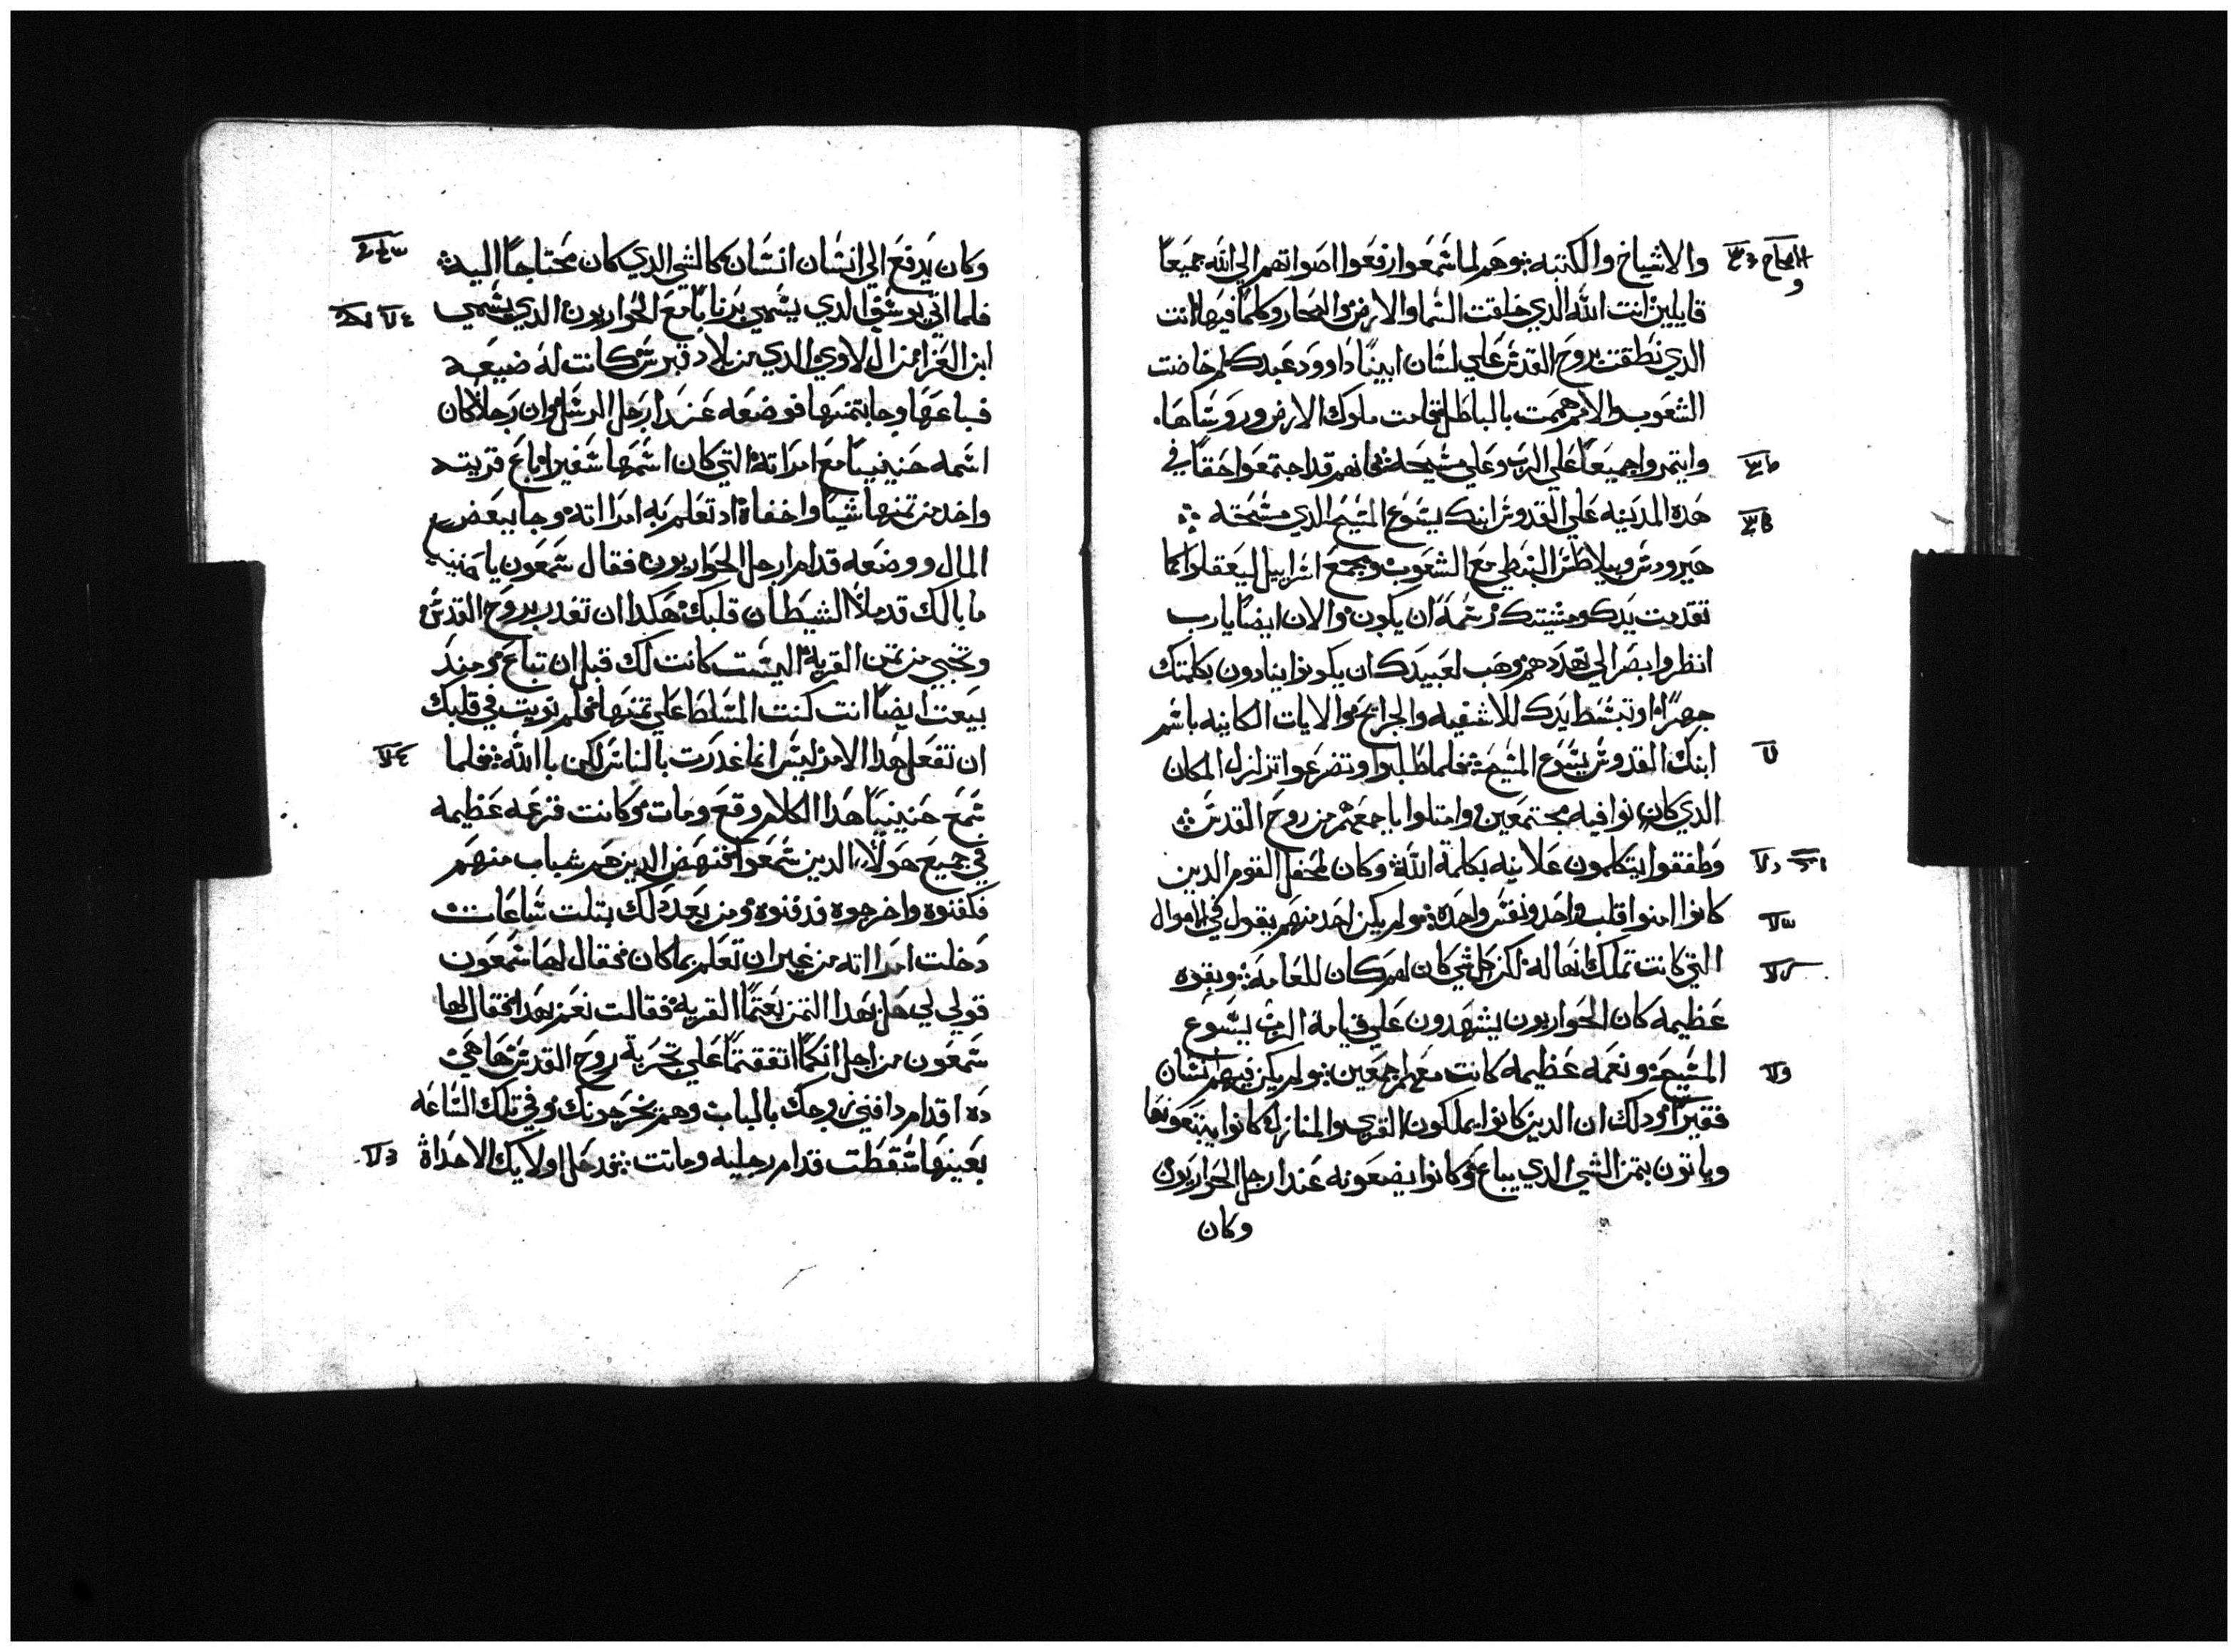 والاشياخ والكتبه وهم لما سمعوا رفعوا اصواتهم الي الله جميعًا
قايلين انت الله الذي خلقت السما والارض والبحار وكلما فيها انت
الذي نطقت بروح القدس علي لسان ابينا داوود عبدك لم خاضت
الشعوب والامم هممت بالباطل قامت ملوك الارض وروساها.
وايتمروا جميعًا علي الرب وعلي مسيحه فانهم قد اجتمعوا حقًا في
هذه المدينه علي القدوس ابنك يسوع المسيح الذي مسحته
هيرودس وبيلاطس البنطي مع الشعوب ومجمع اسراييل ليعقلوا كما
تقدمت يدك ومشيتك رسمة ان يكون والان ايضًا يارب
انظر وابصر الي تهددهم وهب لعبيدك ان يكونوا ينادون بكلمتك
جهرًا وتبسط يدك للاشفيه والجرايح والايات الكاينه باسم
ابنك القدوس يسوع المسيح فلما طلبوا وتضرعوا تزلزل المكان
الذي كانوا فيه مجتمعين وامتلوا باجمعهم من روح القدس
وطفقوا يتكلمون علانيه بكلمة الله وكان لمحفل القوم الدين
كانوا امنوا قلب واحد ونفس واحده ولم يكن احد منهم يقول في الاموال
التي كانت تملك انها له لكن كل شي كان لهم كان للعامة وبقوه
عظيمه كان الحواريون يشهدون علي قيامة الرب يسوع
المسيح ونعمه عظيمه كانت معهم اجمعين ولم يكن فيهم انسان
فقيرًا ودلك ان الدين كانوا يملكون القري والمنازل كانوا يبتعونها
وياتون بتمن الشي الدي يباع وكانوا يضعونه عند ارجل الحواريون
وكان
وكان يدفع الي انسان انسان كالشي الدي كان محتاجًا اليه
فلما اتي يوسف الدي يسمي برنابا مع الحواريون الدي يسمي
ابن العزا من ال لاوي الدي من بلاد قبرس كانت له ضيعه
فباعها وجا بتمنها فوضعه عند ارجل الرسل وان رجلا كان
اسمه حنينيا مع امراته التي كان اسمها شفيرا باع قريته
واخد من تمنها شيا واخفاه اد تعلم به امراته وجا ببعض
المال ووضعه قدام ارجل الحواريون فقال شمعون يا حننيا
ما بالك قد ملا الشيطان قلبك هكدا ان تغدر بروح القدس
وتخبي من تمن القرية اليست كانت لك قبل ان تباع ومند
بيعت ايضًا انت كنت المسلط علي تمنها فلم نويت في قلبك
ان تفعل هدا الامر ليس انما غدرت بالناس لكن باالله فلما
سمع حنينيا هدا الكلام وقع ومات وكانت فزعه عظيمه
في جميع هولاء الدين سمعوا فنهض الدين هم شباب منهم
فكفنوه واخرجوه فدفنوه ومن بعد دلك بتلت ساعات
دخلت امراته من غير ان تعلم بما كان فقال لها شمعون
قولي لي هل بهدا التمن بعتما القريه فقالت نعم بهدا فقال لها
شمعون من اجل انكما اتفقتما علي تجربة روح القدس ها هي
ده اقدام دافني زوجك بالباب وهم يخرجونك وفي تلك الساعه
بعينها سقطت قدام رجليه وماتت فدخل اولايك الاحداة